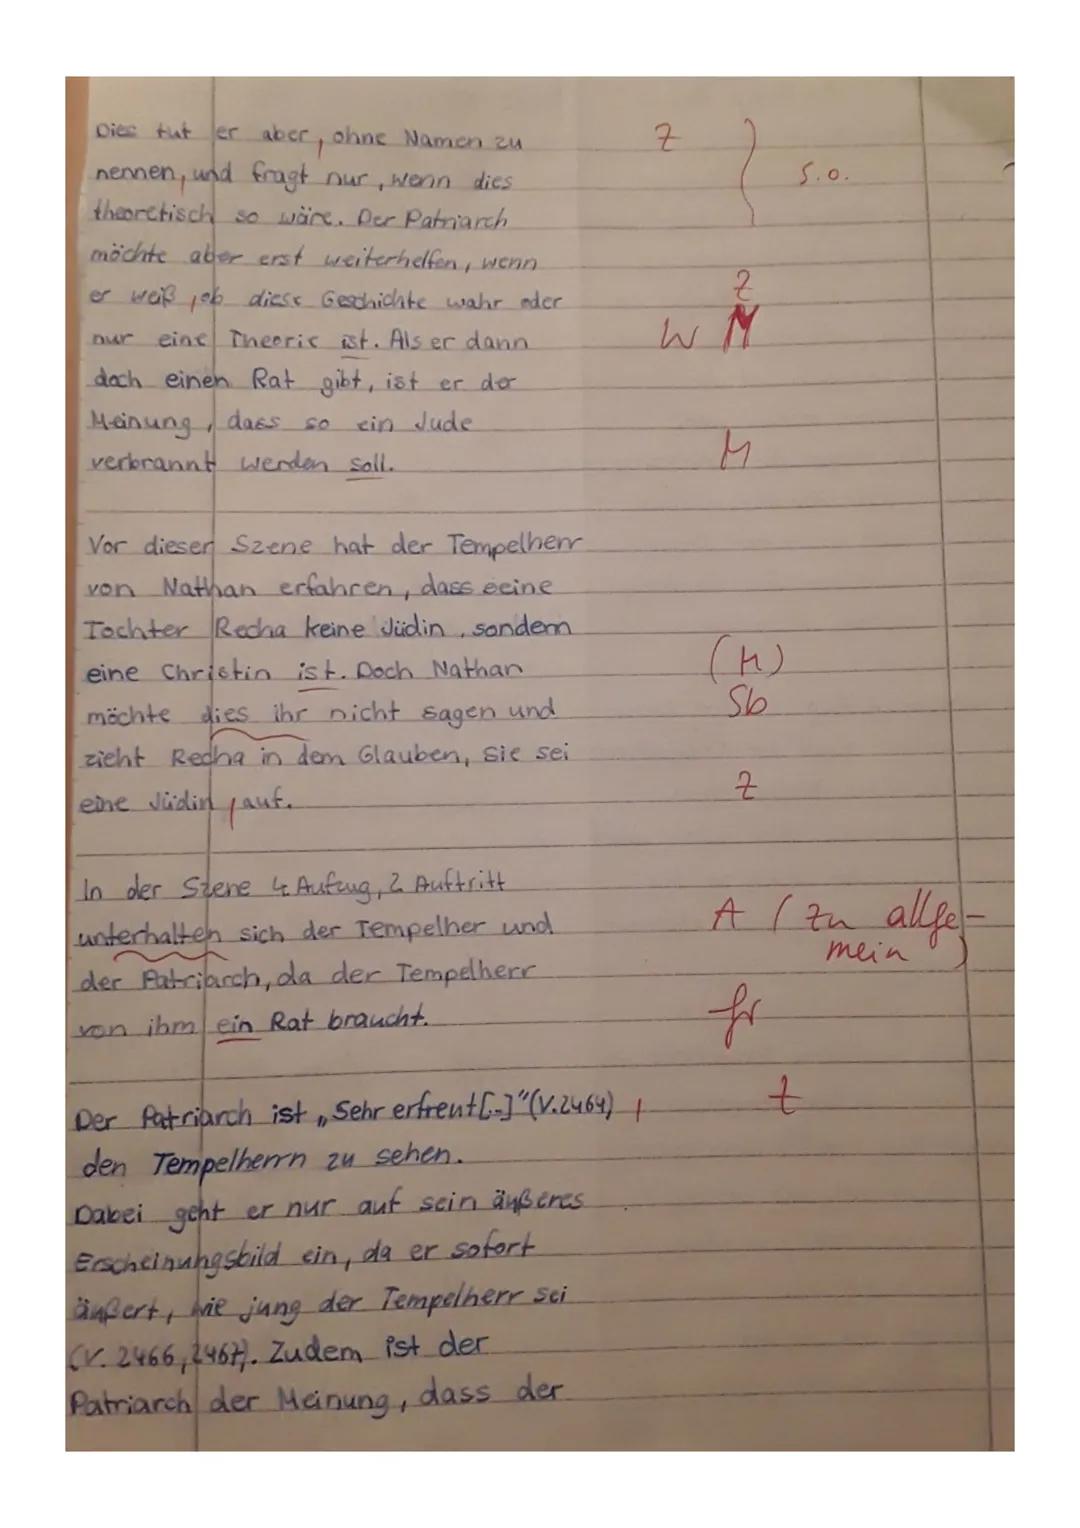 Dies tut er aber, ohne Namen zu Z
nennen, und fragt nur, wenn dies s.o.
theoretisch so wäre. Der Patriarch
möchte aber erst weiterhelfen, wenn
er weiß, ob diese Geschichte wahr oder Z
nur eine Theorie ist. Als er dann W M
doch einen Rat gibt, ist er der
Meinung, dass so ein Jude
verbrannt werden soll. M
Vor dieser Szene hat der Tempelherr
von Nathan erfahren, dass seine
Tochter Recha keine Jüdin, sondern
eine Christin ist. Doch Nathan (M)
möchte dies ihr nicht sagen und Sb
zieht Recha in dem Glauben, sie sei
eine Jüdin, auf. Z
In der Szene 4. Aufzug, 2. Auftritt
unterhalten sich der Tempelher und A (zu allge-
der Patriarch, da der Tempelherr mein)
von ihm ein Rat braucht. fr
Der Patriarch ist „Sehr erfreut[..]"(V.2464), Z
den Tempelherrn zu sehen.
Dabei geht er nur auf sein äußeres
Erscheinungsbild ein, da er sofort
äußert, wie jung der Tempelherr sei
(V. 2466, 2467). Zudem ist der
Patriarch der Meinung, dass der